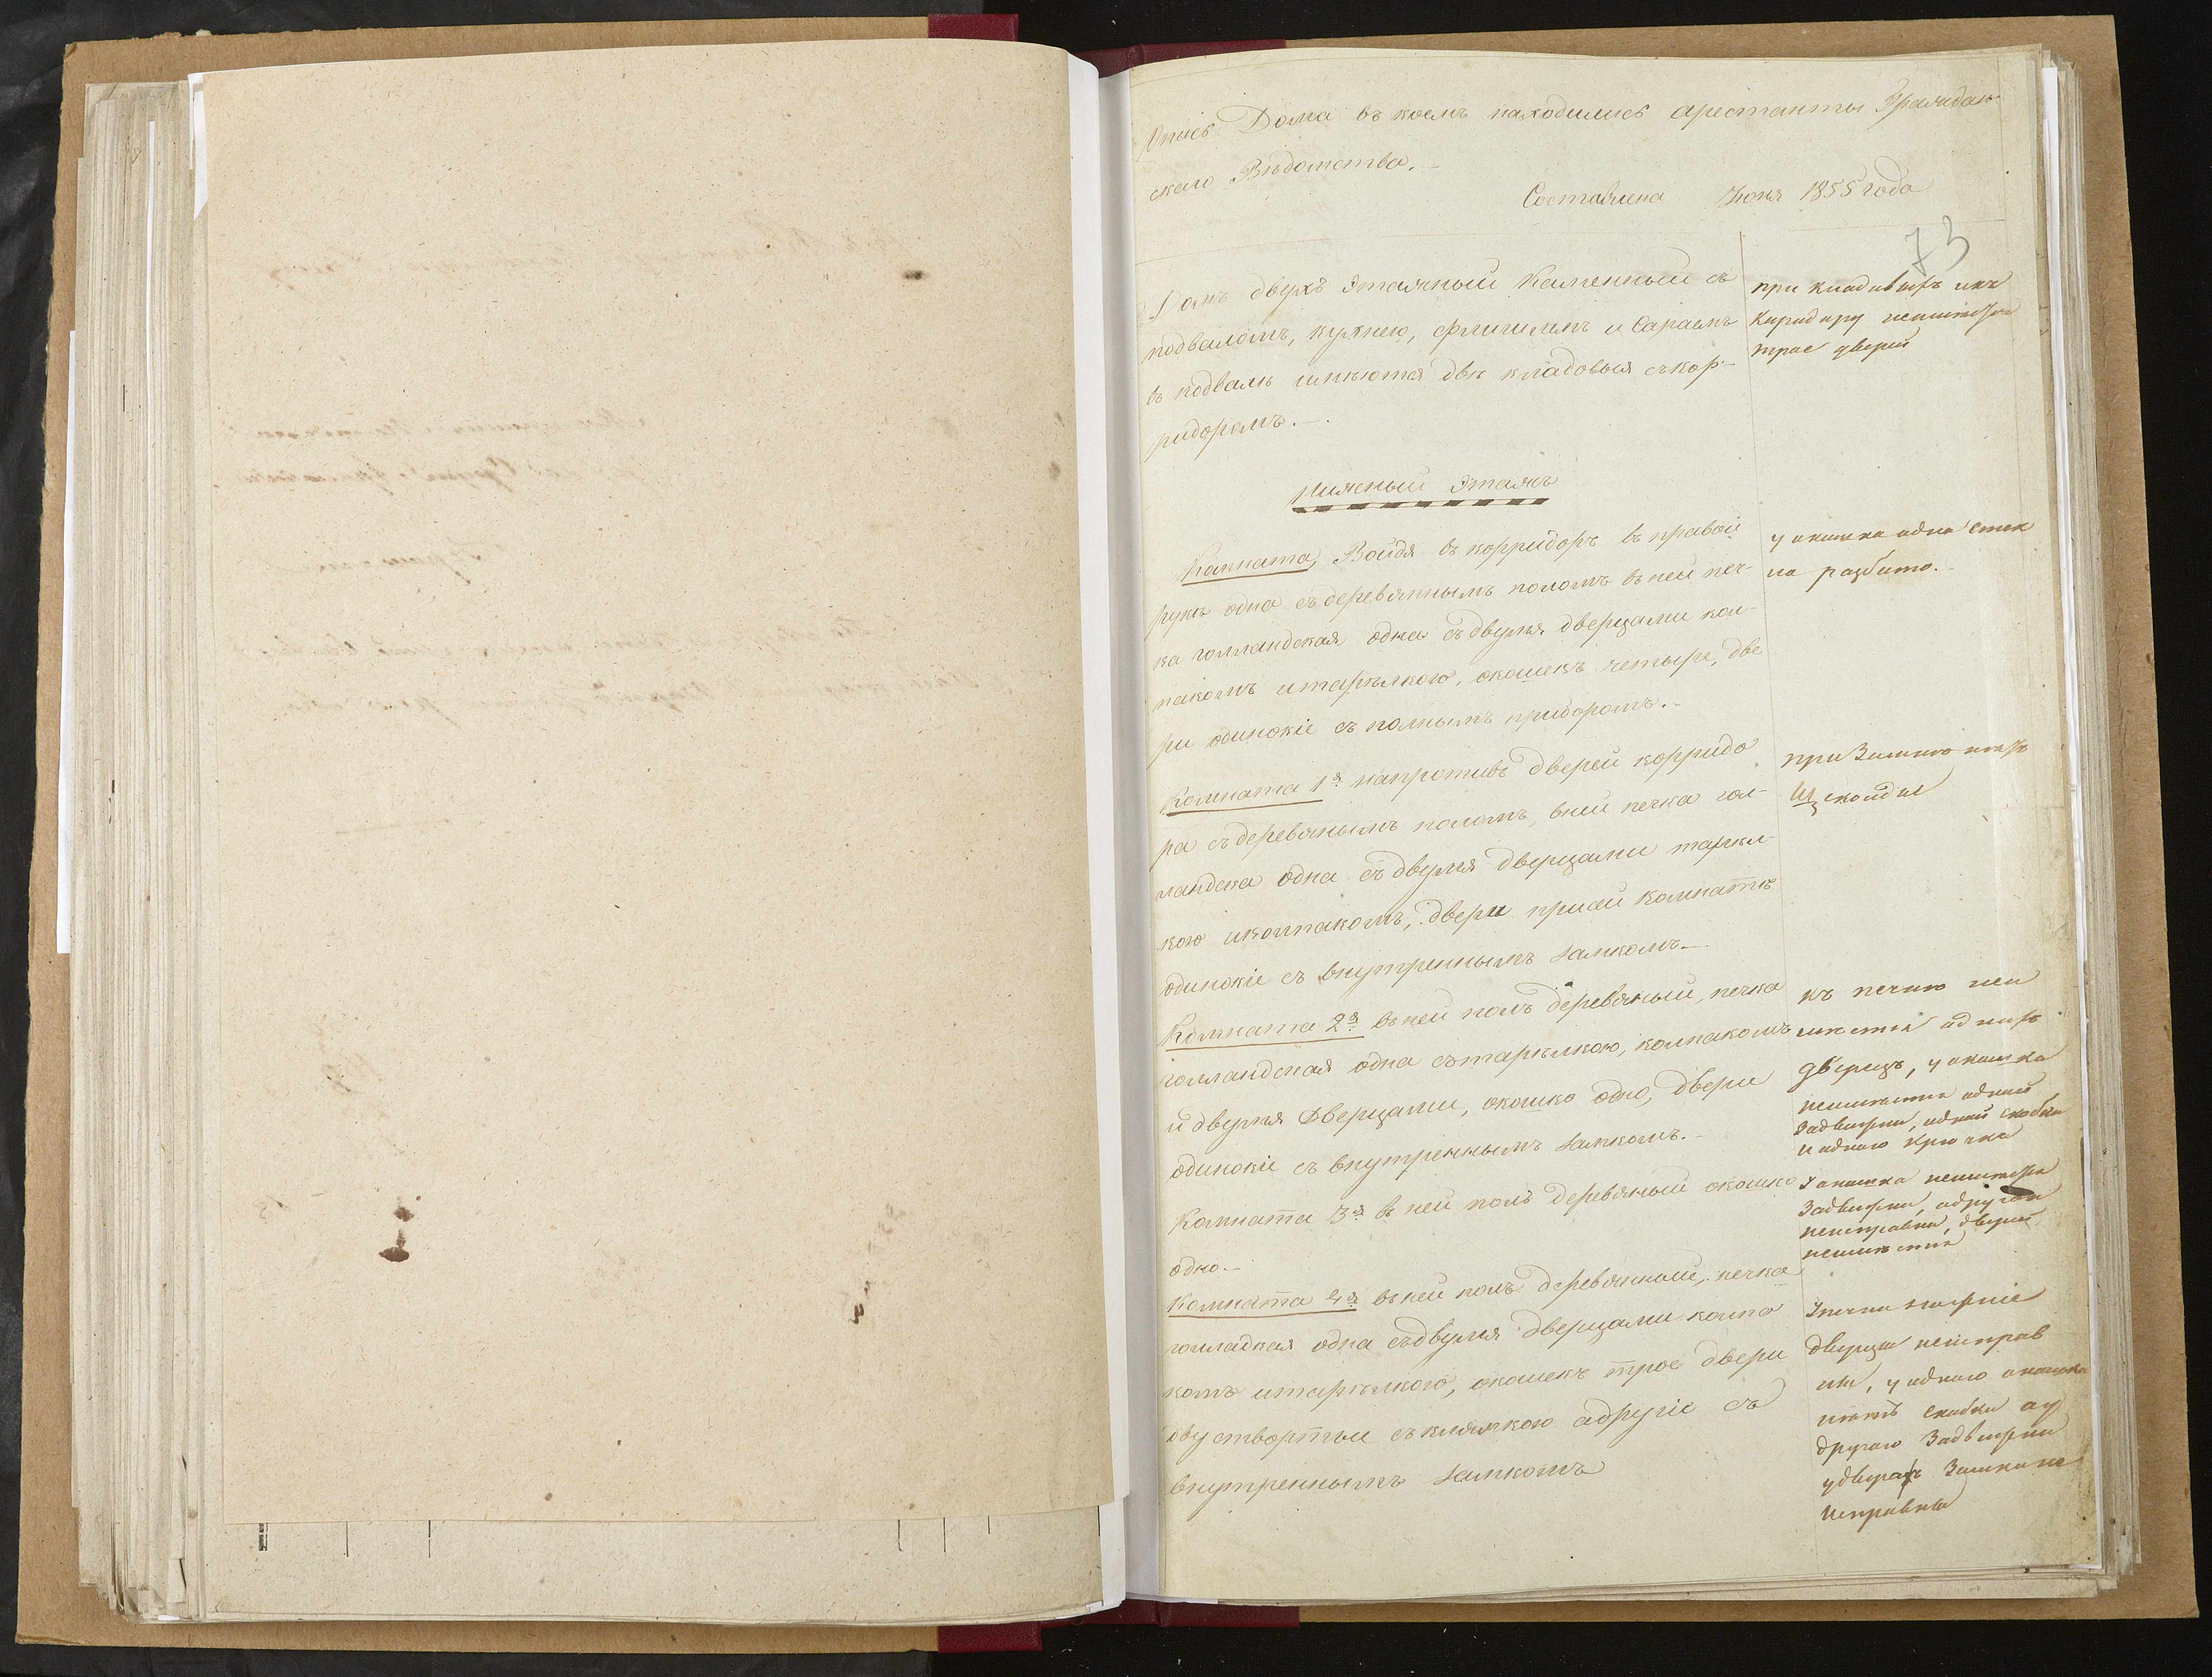 Опись Дома въ коемъ находились арестанты Граждан-
скаго Вѣдомства.-
Составлена Июня 1855 года
73
Домъ двухъ этажный Каменный съ
подваломъ, кухнею, флигилемъ и Сараемъ
въ подвалѣ имѣются двѣ кладовыя съ кор-
ридоромъ.-.
при кладовыхъ икъ
Каридару неимѣется
трое дверей
Нижный этажъ
Комната, Войдя въ корридоръ въ правой
рукѣ одна съ деревяннымъ поломъ въ ней печ-
ка голландская одна съ двумя дверцами кол-
пакомъ итарѣлкою, окошекъ четыре, две
ри одинокіе съ полнымъ приборомъ.-
у окошка одно стек
ло разбито.-
Комната 1я напротивъ дверей корридо
ра съ деревянымъ поломъ, вней печка гол-
ландска одна съ двумя дверцами тарѣл-
кою иколпакомъ, двери присей комнатѣ
одинокіе съ внутреннымъ замкомъ.-
при Замкѣ нѣтъ
Комната 2я въ ней полъ деревяный, печка
голландская одна сътарѣлкою, колпакомъ
и двумя Дверцами, окошко одно, двери
одинокіе съ внутреннымъ замкомъ.-
къ печки неи
мѣется однихъ
дверецъ, у окошка
неимѣется одной
Задвижки, одной скобки
и одного крючка
Комната 3я въ ней полъ деревяный окошко
одно.-
У окошка неимѣется
Задвижки, адругая
неисправна, дверей
неимѣется
Комната 4я въ ней полъ деревянный, печка
голладкая одна съдвумя дверцами колпа
комъ итарѣлкою, окошекъ трое двери
двуствортые съ клямкою адругіе съ
внутреннымъ замкомъ
Упечки
дверцы неисправ
ны, у одного окошка
нѣтъ скобки ау
другаго Задвижки
удверахъ Замки не
исправны